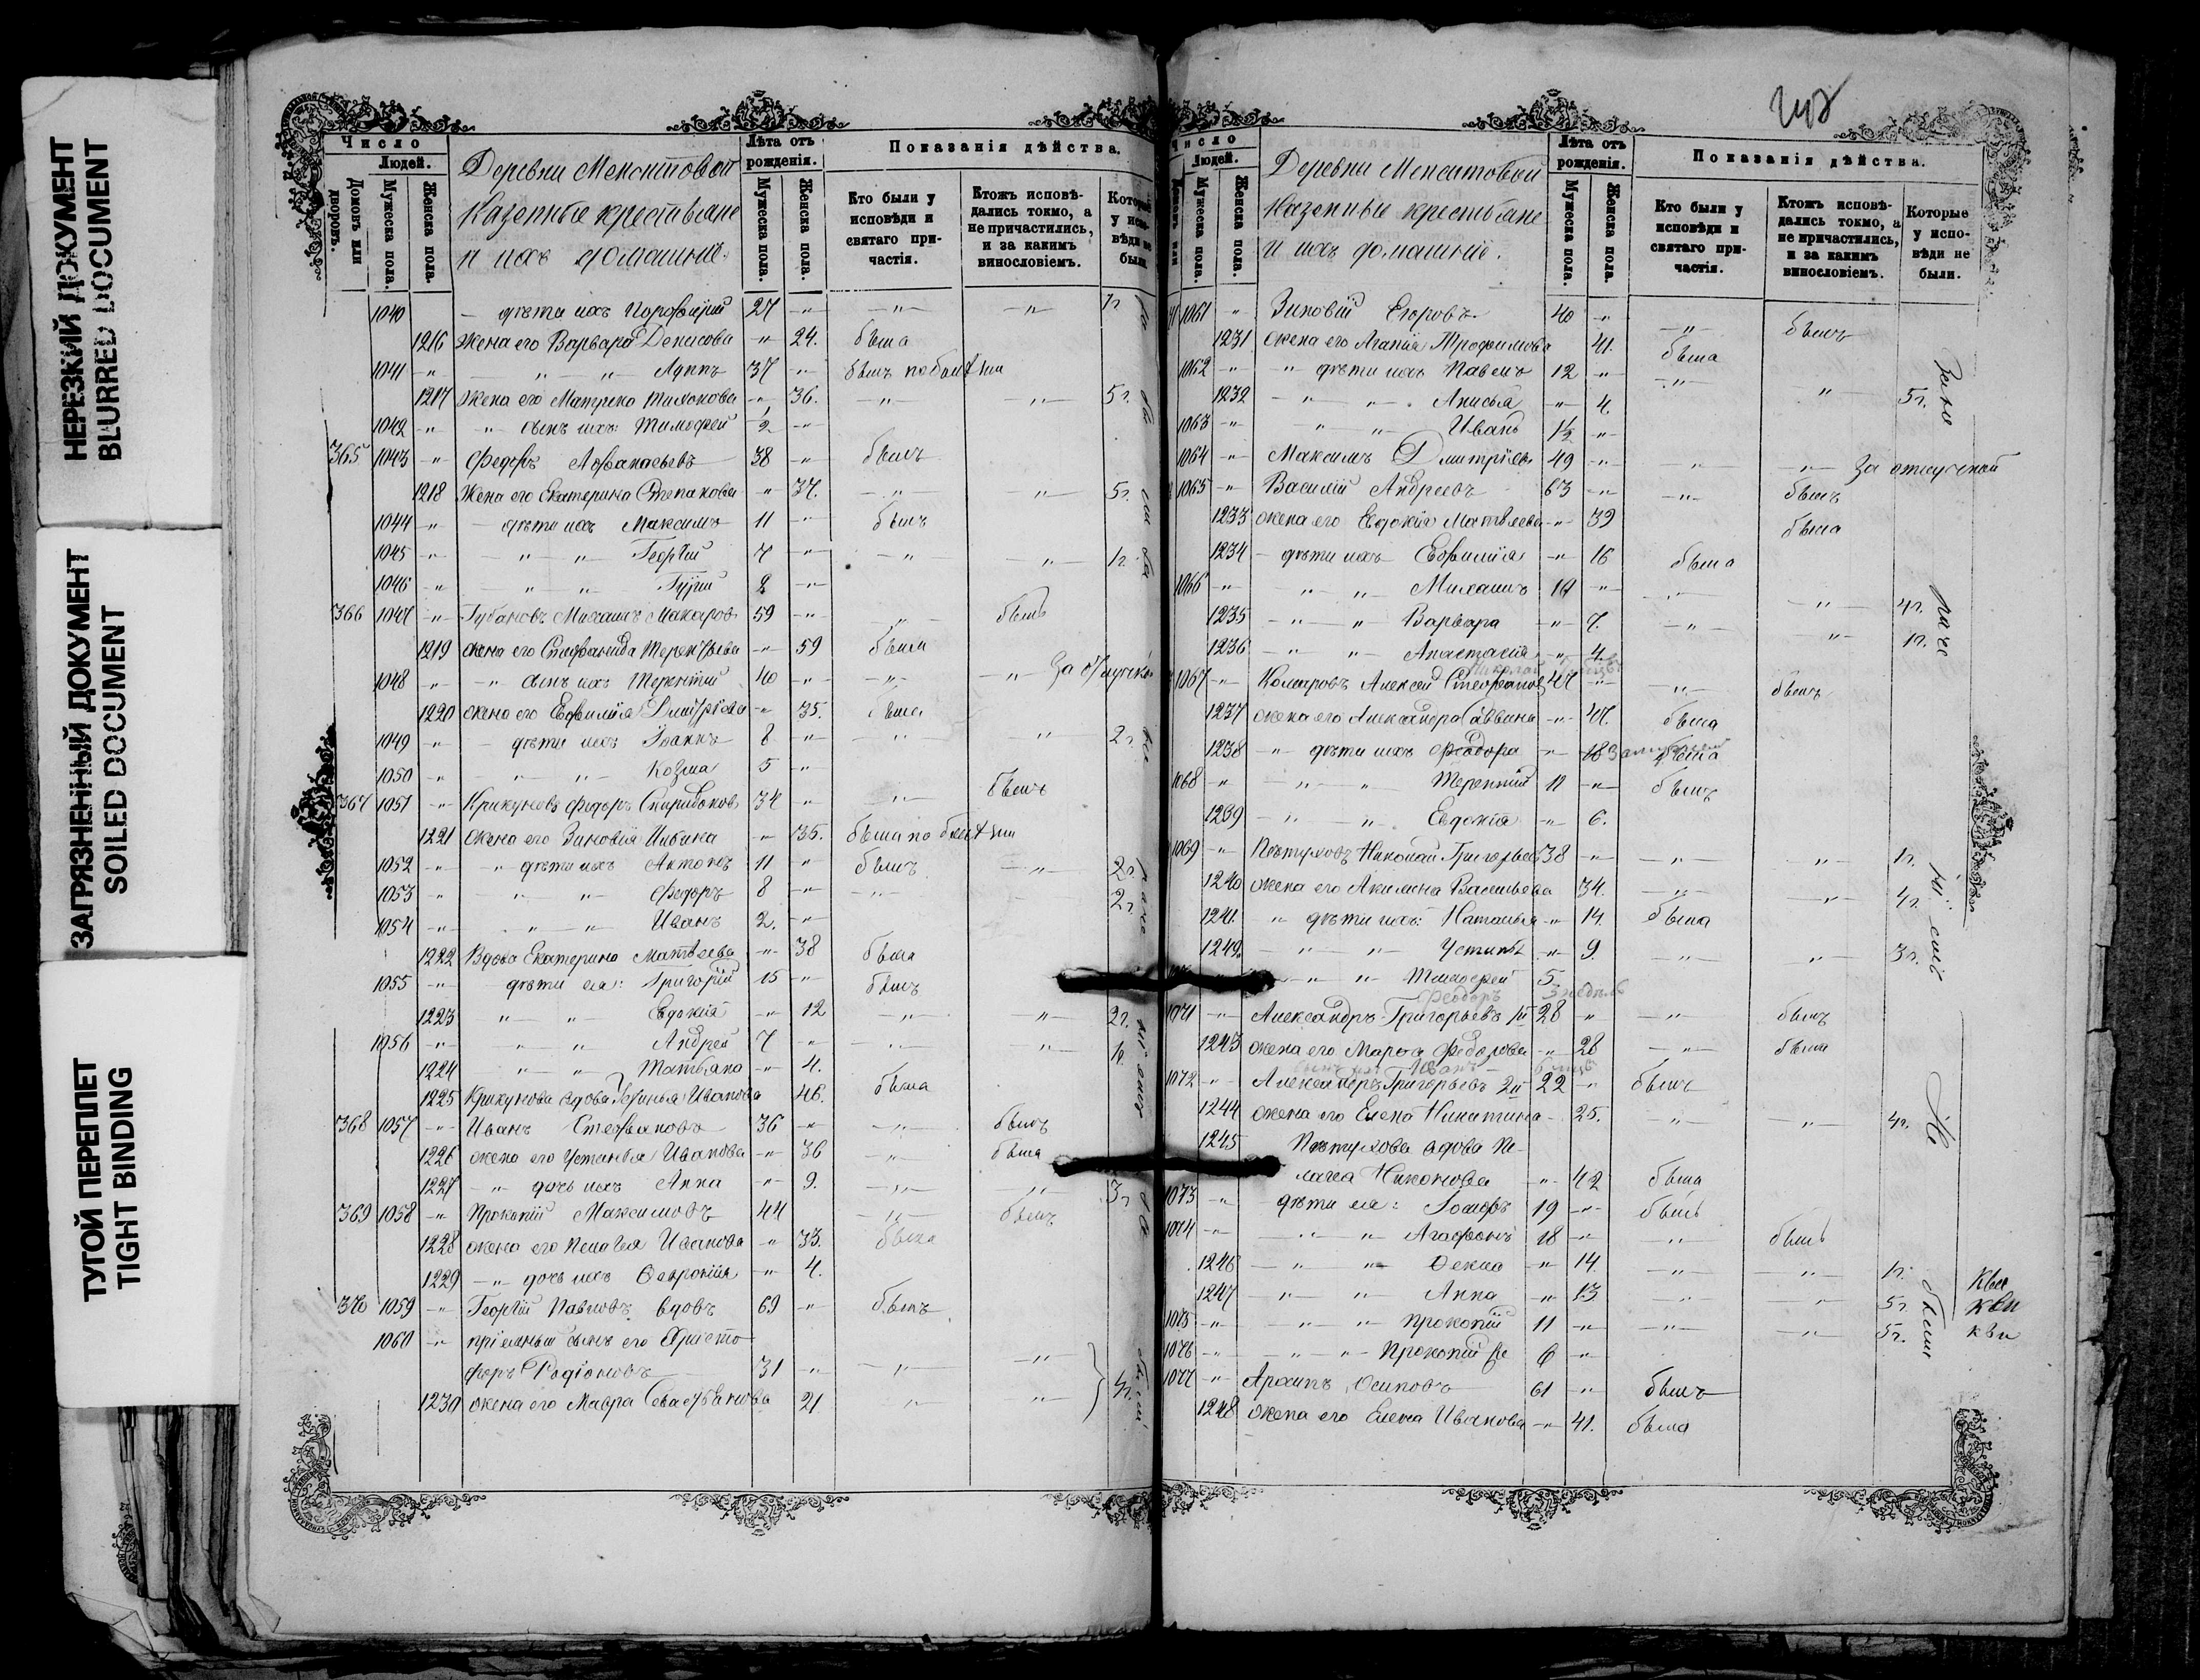 НЕРЕЗКИЙ ДОКУМЕНТ
BLURRED DOCUMENT
ЗАГРЯЗНЕННЫЙ ДОКУМЕНТ
SOILED DOCUMENT
ТУГОЙ ПЕРЕПЛЕТ
TIGHT BINDING
Число
Людей.
Домовъ или дворовъ.
Мужеска пола.
Женска пола.
Деревни
Казенные крестьяне
и ихъ домашніе.
Лѣта отъ рожденія.
Мужеска пола.
Женска пола.
Показанія дѣйства.
Кто были у исповѣди и святаго причастія.
Ктожъ исповѣдались токмо, а не причастились, и за какимъ винословіемъ.
Которые у исповѣди не были.
1040 - дѣти ихъ Порфирій 27 -"- -"- -"-
1216 Жена его Варвара Денисова -"- 24. была
1041 -"- -"- -"- 37 -"- былъ
1217 Жена его Матрена -"- 36. -"- -"- 5г.
1042 -"- " сынъ ихъ: Тимофей 2 -"-
365 1043 -"- Федоръ Афанасьевъ 38 -"- былъ
1218 Жена его Екатерина Степанова " 37. -"- " 5г.
1044 -"- - дѣти ихъ Максимъ 11 -"- былъ
1045 -"- -"- -"- Георгій 7 -"- -"- -"- 1г.
1046 -"- -"- -"- Гурій 2 -"-
366 1047 -"- Губановъ Михаилъ Макаровъ 59 -"- -"- былъ
1219 жена его Стефанида Терентьева -"- 59 была
1048 -"- -"- сынъ ихъ Терентій 40 -"- -"- -"- За отлучкой
1220 жена его Евфимія Дмитріева -"- 35. была
1049 -"- - дѣти ихъ Іоаннъ 8 -"- -"- " 2г.
1050 -"- -"- -"- Козма 5 -"-
367 1051 -"- Крикуновъ Федоръ Спиридоновъ 34 -"- -"- былъ
1221 жена его Зиновія Ильина -"- 35. была
1052 -"- " дѣти ихъ Антонъ 11 -"- былъ -"- 2г.
1053 -"- " -"- Федоръ 8 -"- -"- 2г.
1054 -"- " -"- Иванъ 2. -"-
1222 Вдова Екатерина Матвѣева -"- 38 была
1055 -"- дѣти ея: Григорій 15 -"- былъ
1223 " -"- Евдокія -"- 12 -"- -"- 2г.
1056 -"- " -"- Андрей 7 " -"- "
1224 " -"- Татьяна -"- 4.
1225 Крикунова вдова Иванова 46. была
368 1057 -"- Иванъ Стефановъ 36 -"- -"- былъ
1226 жена его Устинья Иванова -"- 36 -"- была
1227 -"- дочь ихъ Анна -"- 9. -"- -"- 3г.
369 1058 -"- Прокопій Максимовъ 44 -"- былъ
1228 жена его Пелагея Иванова -"- 33. была
1229 -"- дочь ихъ -"- 4.
370 1059 -"- Георгій Павловъ вдовъ 69 -"- былъ
1060 -"- пріемный сынъ его Христо
форъ Родіоновъ 31 -"- -"- -"-
1230 жена его Мавра Севастьянова 21 " -"-
Число
Людей.
Мужеска пола.
Женска пола.
Деревни
Казенные крестьяне
и ихъ домашніе.
Лѣта отъ рожденія.
Мужеска пола.
Женска пола.
Показанія дѣйства.
Кто были у исповѣди и святаго причастія.
Ктожъ исповѣдались токмо, а не причастились, и за какимъ винословіемъ.
Которые у исповѣди не были.
1061 -"- Зиновій Егоровъ 40 -"- -"- былъ
1231 жена его Агапія Трофимова 41. была
1062 -"- " дѣти ихъ Павелъ 12 -"- -"-
1232 -"- -"- Анисья -"- 4. " 5г.
1063 -"- " -"- Иванъ 1½ -"-
1064 -"- Максимъ Дмитріевъ 49 -"- -"- -"- За отлучкой
1065 -"- Василій Андреевъ 63 -"- -"- былъ
1233 жена его Евдокія Матвѣева -"- 39 была
1234 - дѣти ихъ Евфимія -"- 16 была
1066 -"- -"- -"- Михаилъ 10 -"- -"- -"- 4г.
1235 -"- " Варвара -"- 7. -"- " 1г.
1236 -"- " Анастасія -"- 4.
1067 -"- Комаровъ Алексей Стефановъ 47 -"- -"- былъ
1237 жена его Александра Саввина -"- 47. была
1238 -"- дѣти ихъ Феодора -"- 18 была
1068 -"- -"- " Терентій 11 -"- былъ
1239 -"- " Евдокія -"- 6.
1069 -"- Пѣтуховъ Николай Григорьевъ 38 -"- -"- -"- 1г.
1240 жена его Акилина Васильева 34. -"- -"- 4г.
1241. " дѣти ихъ: Наталья -"- 14. была
1242. -"- " -"- 9. -"- " 3г.
-"- " Тимофей 5.
1071 -"- Александръ Григорьевъ 28 " -"- былъ
1243 жена его Марфа Федорова -"- 28 -"- была
1072 -"- Александръ Григорьевъ 2й 22 -"- былъ
1244 жена его Елена Никитина - 25. -"- -"- 4г.
1245 Пѣтухова вдова Пе-
лагея Никонова -"- 42 была
1073 -"- дѣти ея: 19 -"- былъ
1074 -"- -"- -"- Агафонъ 18 -"- -"- былъ
1246 -"- " -"- 14. -"- -"- 1г.
1247 -"- -"- Анна -"- 13 -"- " 5г.
1075 -"- -"- -"- Прокопій 11 -"- -"- -"- 5г.
1076 -"- -"- -"- Прокопій 6 -"-
1077 -"- Архипъ Осиповъ 61 -"- былъ
1248 жена его Елена Иванова -"- 41. была